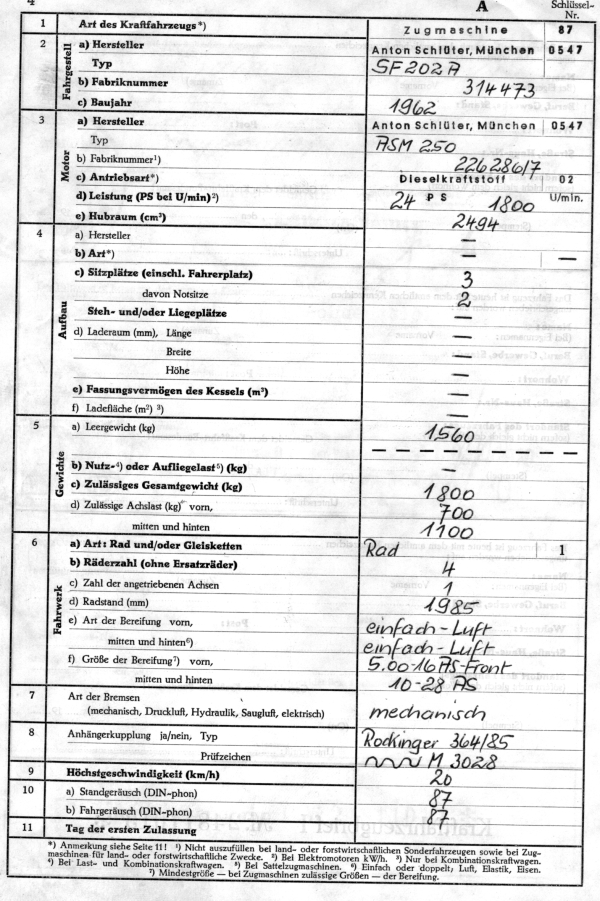 4
A
Schlüssel-
Nr.
1 Art des Kraftfahrzeugs*) Zugmaschine 87
2 Fahrgestell a) Hersteller Anton Schlüter, München 0547
Typ SF 202 A
b) Fabriknummer 314473
c) Baujahr 1962
3 Motor a) Hersteller Anton Schlüter, München 0547
Typ ASM 250
b) Fabriknummer¹) 226286/7
c) Antriebsart*) Dieselkraftstoff 02
d) Leistung (PS bei U/min)²) 24 PS 1800 U/min.
e) Hubraum (cm³) 2494
4 Aufbau a) Hersteller —
b) Art*) — —
c) Sitzplätze (einschl. Fahrerplatz) 3
davon Notsitze 2
Steh- und/oder Liegeplätze —
d) Laderaum (mm), Länge —
Breite —
Höhe —
e) Fassungsvermögen des Kessels (m³) —
f) Ladefläche (m²) ³) —
5 Gewichte a) Leergewicht (kg) 1560
b) Nutz-⁴) oder Aufliegelast⁵) (kg) —
c) Zulässiges Gesamtgewicht (kg) 1800
d) Zulässige Achslast (kg) vorn, 700
mitten und hinten 1100
6 Fahrwerk a) Art: Rad und/oder Gleisketten Rad 1
b) Räderzahl (ohne Ersatzräder) 4
c) Zahl der angetriebenen Achsen 1
d) Radstand (mm) 1985
e) Art der Bereifung vorn, einfach-Luft
mitten und hinten⁶) einfach-Luft
f) Größe der Bereifung⁷) vorn, 5.00-16 AS-Front
mitten und hinten 10-28 AS
7 Art der Bremsen
(mechanisch, Druckluft, Hydraulik, Saugluft, elektrisch) mechanisch
8 Anhängerkupplung ja/nein, Typ Rockinger 364/85
Prüfzeichen M 3028
9 Höchstgeschwindigkeit (km/h) 20
10 a) Standgeräusch (DIN-phon) 87
b) Fahrgeräusch (DIN-phon) 87
11 Tag der ersten Zulassung
*) Anmerkung siehe Seite 11! ¹) Nicht auszufüllen bei land- oder forstwirtschaftlichen Sonderfahrzeugen sowie bei Zug-
maschinen für land- oder forstwirtschaftliche Zwecke. ²) Bei Elektromotoren kW/h. ³) Nur bei Kombinationskraftwagen.
⁴) Bei Last- und Kombinationskraftwagen. ⁵) Bei Sattelzugmaschinen. ⁶) Einfach oder doppelt, Luft, Elastik, Eisen.
⁷) Mindestgröße — bei Zugmaschinen zulässige Größen — der Bereifung.